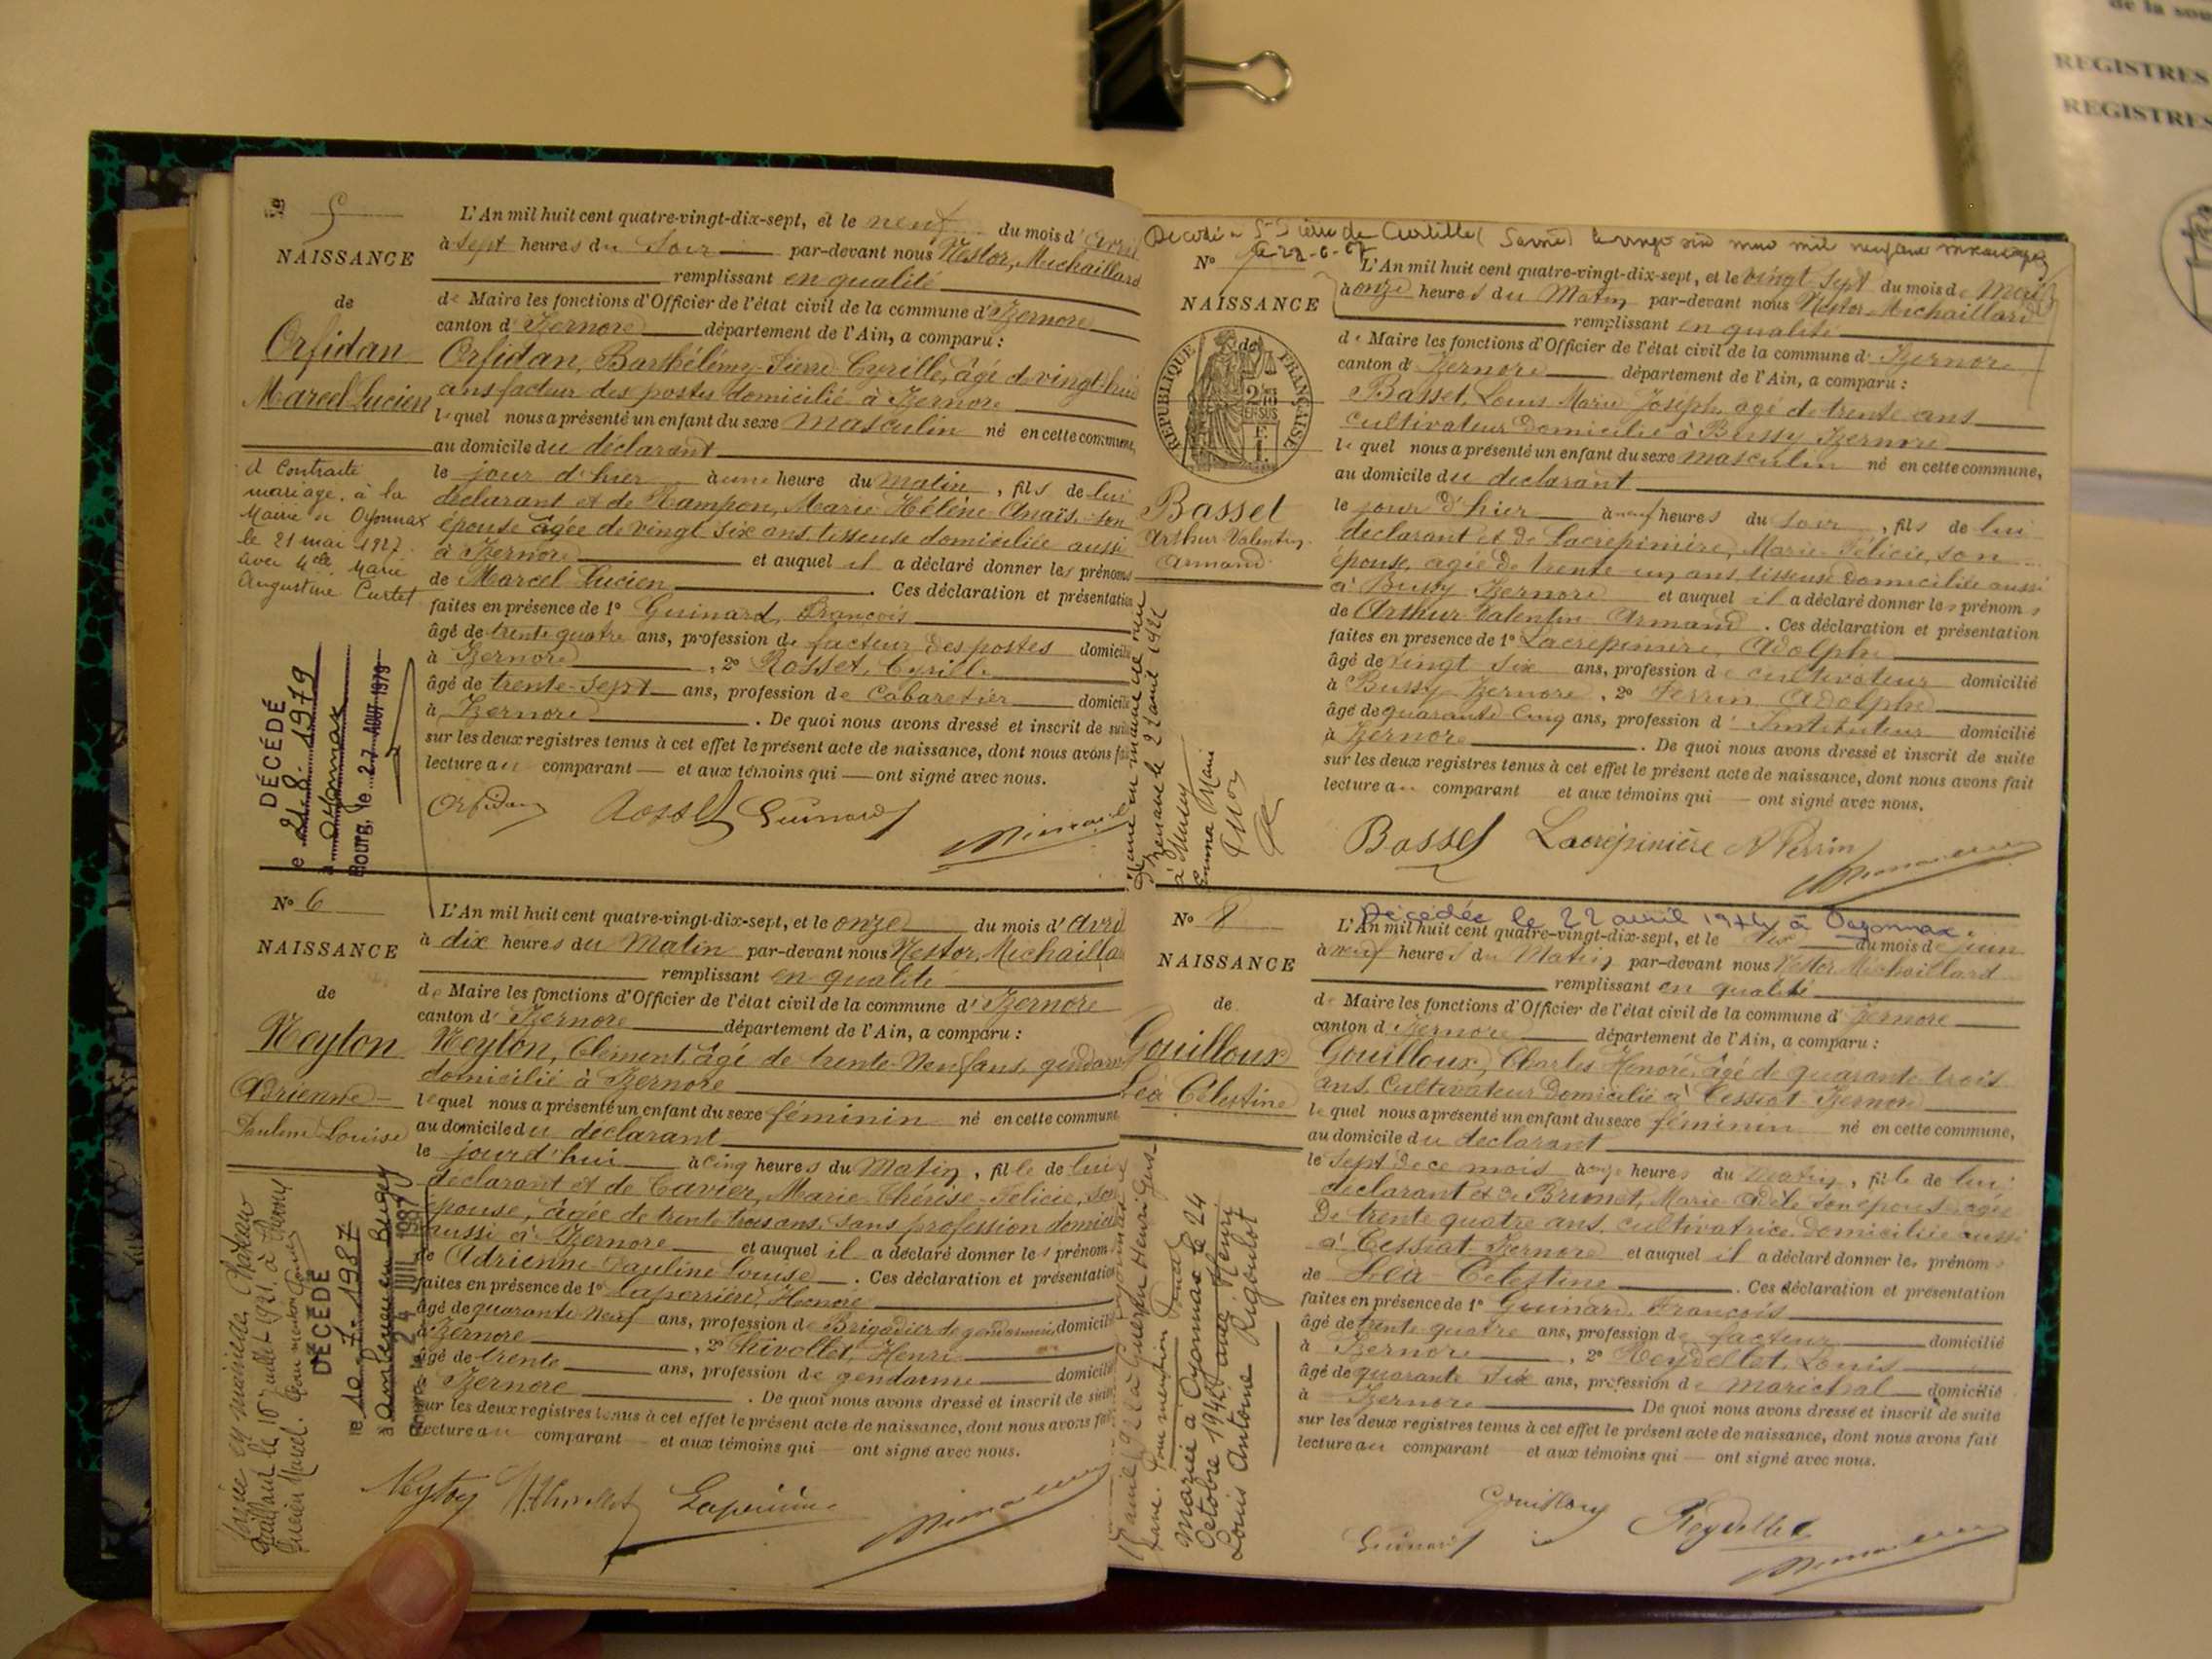 N° 5
NAISSANCE
de
Orfidan
Marcel Lucien
a Contracté
mariage à la
Mairie de Oyonnax
le 21 mai 1927
avec Melle Marie
Augustine Curtet
DÉCÉDÉ
le 21.8.1979
à Oyonnax
Bourg, le 27 AOUT 1979
L'An mil huit cent quatre-vingt-dix-sept, et le neuf du mois d'avril
à sept heures du soir par-devant nous Nestor, Michaillard
remplissant en qualité
de Maire les fonctions d'Officier de l'état civil de la commune d'Izernore
canton d'Izernore département de l'Ain, a comparu :
Orfidan, Barthélémy Pierre Cyrille, âgé de vingt huit
ans facteur des postes domicilié à Izernore
lequel nous a présenté un enfant du sexe masculin né en cette commune,
au domicile du déclarant
le jour d'hier à une heure du matin, fils de lui
déclarant et de Hampon, Marie Hélène Anaïs, son
épouse âgée de vingt six ans tisseuse domiciliée aussi
à Izernore et auquel il a déclaré donner les prénoms
de Marcel Lucien . Ces déclaration et présentation
faites en présence de 1° Guinard, François
âgé de trente quatre ans, profession de facteur des postes domicilié
à Izernore , 2° Rosset, Cyrille
âgé de trente-sept ans, profession de cabaretier domicilié
à Izernore . De quoi nous avons dressé et inscrit de suite
sur les deux registres tenus à cet effet le présent acte de naissance, dont nous avons fait
lecture au comparant et aux témoins qui ont signé avec nous.
Orfidan Rosset Guinard
N° 6
NAISSANCE
de
Neyton
Adrienne
Pauline Louise
DÉCÉDÉ
le 10.7.1987
à Ambérieu en Bugey
24 JUIL 1987
L'An mil huit cent quatre-vingt-dix-sept, et le onze du mois d'avril
à dix heures du matin par-devant nous Nestor, Michailla
remplissant en qualité
de Maire les fonctions d'Officier de l'état civil de la commune d'Izernore
canton d'Izernore département de l'Ain, a comparu :
Neyton, Clément, âgé de trente-neuf ans, gendarme
domicilié à Izernore
lequel nous a présenté un enfant du sexe féminin né en cette commune
au domicile du déclarant
le jour d'hui à cinq heures du matin, fille de lui
déclarant et de Cavier, Marie Thérèse Félicie, son
épouse, âgée de trente trois ans, sans profession domiciliée
aussi à Izernore et auquel il a déclaré donner les prénom
de Adrienne Pauline Louise . Ces déclaration et présentation
faites en présence de 1° Laperrière, Honoré
âgé de quarante neuf ans, profession de Brigadier de gendarmerie, domicilié
à Izernore , 2° Chivollet, Henri
âgé de trente ans, profession de gendarme domicilié
à Izernore . De quoi nous avons dressé et inscrit de suite
sur les deux registres tenus à cet effet le présent acte de naissance, dont nous avons fait
lecture au comparant et aux témoins qui ont signé avec nous.
Neyton Laperrière
Décédé à St Pierre de Curtille (Savoie) le vingt six
N°
NAISSANCE
RÉPUBLIQUE FRANÇAISE
Basset
Arthur Valentin
Armand
L'An mil huit cent quatre-vingt-dix-sept, et le vingt sept du mois de Mai
à onze heures du matin par-devant nous Nestor Michaillard
remplissant en qualité
de Maire les fonctions d'Officier de l'état civil de la commune d'Izernore
canton d'Izernore département de l'Ain, a comparu :
Basset, Louis Marie Joseph, âgé de trente ans
cultivateur domicilié à Bussy Izernore
lequel nous a présenté un enfant du sexe masculin né en cette commune,
au domicile du déclarant
le jour d'hier à neuf heures du soir, fils de lui
déclarant et de Lacrepinière, Marie Félicie, son
épouse, agée de trente un ans tisseuse domiciliée aussi
à Bussy Izernore et auquel il a déclaré donner les prénoms
de Arthur Valentin Armand . Ces déclaration et présentation
faites en présence de 1° Lacrepinière, Adolphe
âgé de vingt six ans, profession de cultivateur domicilié
à Bussy Izernore , 2° Perrin Adolphe
âgé de quarante cinq ans, profession d'Instituteur domicilié
à Izernore . De quoi nous avons dressé et inscrit de suite
sur les deux registres tenus à cet effet le présent acte de naissance, dont nous avons fait
lecture au comparant et aux témoins qui ont signé avec nous.
Basset Lacrépinière A Perrin
Décédée le 22 avril 1974 à Oyonnax.
N° 8
NAISSANCE
de
Gouilloux
Léa Célestine
Mariée à Oyonnax le 24
Octobre 1942 avec Henri
Louis Antoine Rigoulot
L'An mil huit cent quatre-vingt-dix-sept, et le dix du mois de juin
à neuf heures du matin par-devant nous Nestor Michaillard
remplissant en qualité
de Maire les fonctions d'Officier de l'état civil de la commune d'Izernore
canton d'Izernore département de l'Ain, a comparu :
Gouilloux, Charles Honoré, âgé de quarante trois
ans, cultivateur domicilié à Cessiat Izernore
lequel nous a présenté un enfant du sexe féminin né en cette commune,
au domicile du déclarant
le sept de ce mois à onze heures du matin, fille de lui
déclarant et de Brunet, Marie Adèle son épouse agée
de trente quatre ans, cultivatrice domiciliée aussi
à Cessiat Izernore et auquel il a déclaré donner les prénoms
de Léa Célestine . Ces déclaration et présentation
faites en présence de 1° Guinard, François
âgé de trente quatre ans, profession de facteur domicilié
à Izernore , 2° Reydellet, Louis
âgé de quarante six ans, profession de maréchal domicilié
à Izernore . De quoi nous avons dressé et inscrit de suite
sur les deux registres tenus à cet effet le présent acte de naissance, dont nous avons fait
lecture au comparant et aux témoins qui ont signé avec nous.
Gouilloux
Guinard Reydellet
REGISTRES
REGISTRES